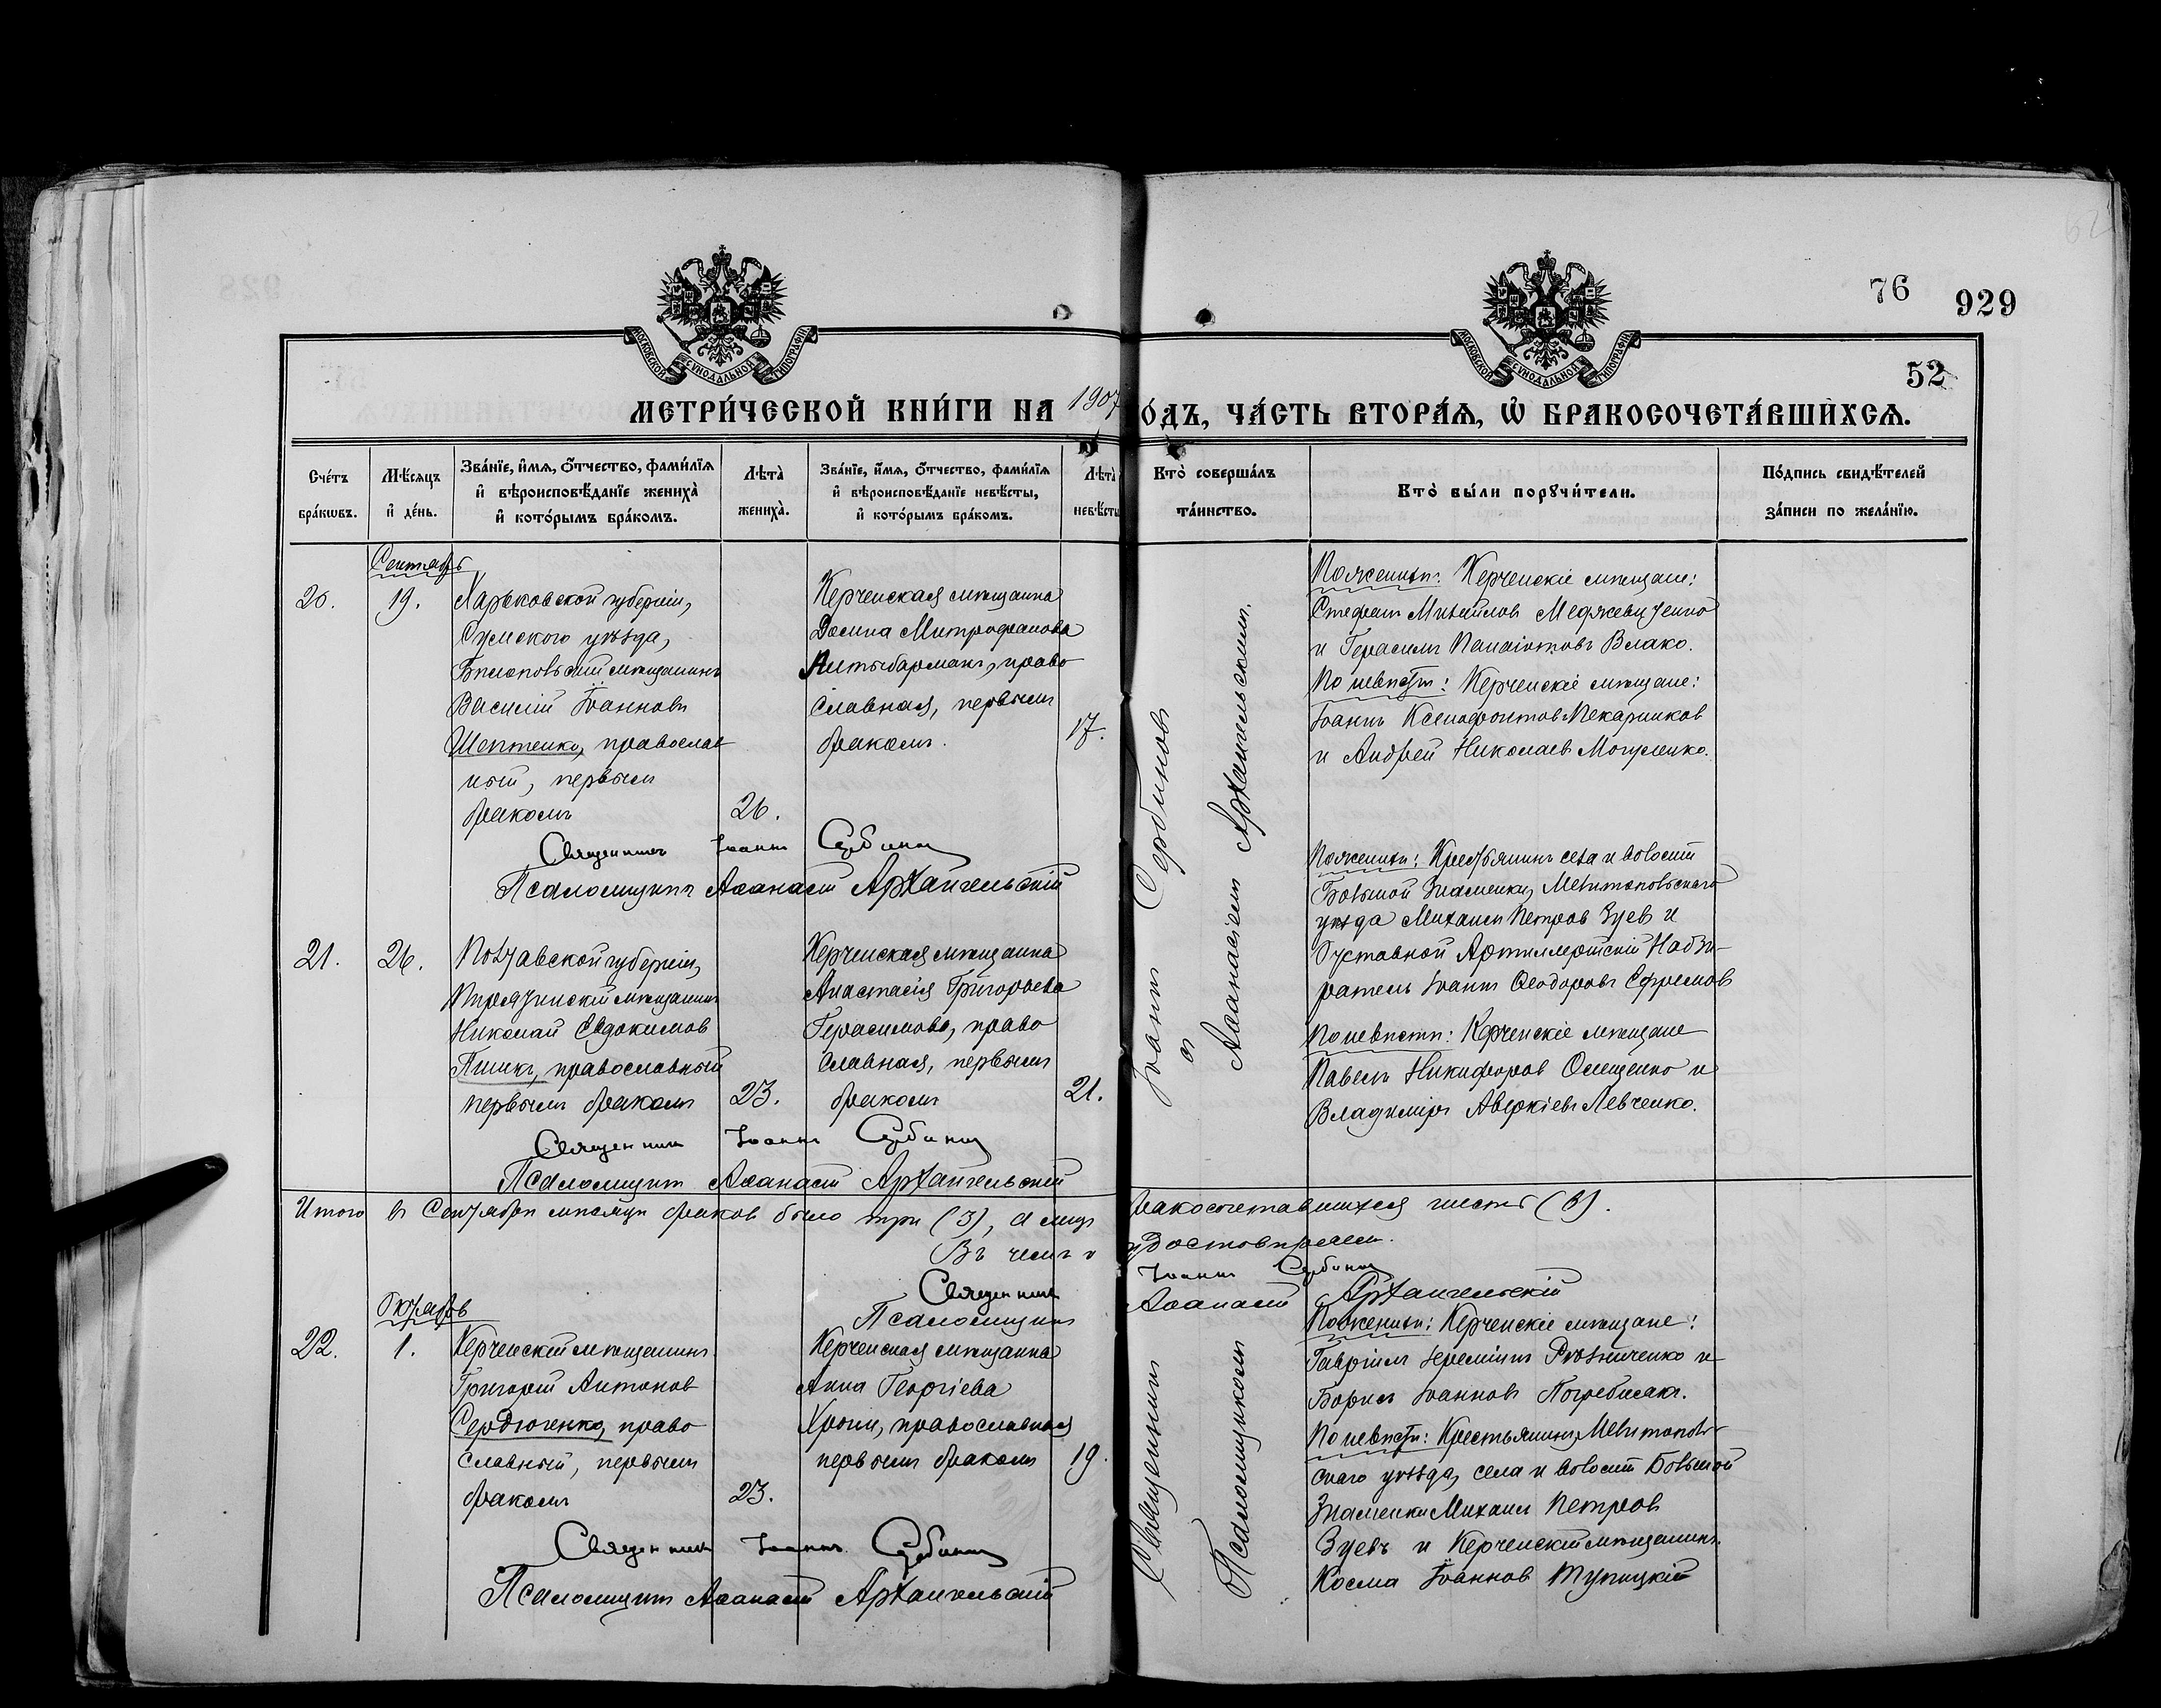 928
76
929
52
МОСКОВСКОЙ СѴНОДАЛЬНОЙ ТИПОГРАФІИ
МОСКОВСКОЙ СѴНОДАЛЬНОЙ ТИПОГРАФІИ
МЕТРИ́ЧЕСКОЙ КНИ́ГИ НА 1907
О́ДЪ, ЧА́СТЬ ВТОРА́Ѧ, Ѡ҆ БРАКОСОЧЕТА́ВШИХСѦ.
Сче́тъ
бра́кѡвъ.
Мѣ́сѧцъ
и҆ де́нь.
Зва́нїе, и҆́мѧ, ѻ҆́тчество, фами́лїѧ
и҆ вѣроисповѣ́данїе жениха̀
и҆ кото́рымъ бра́комъ.
Лѣта̀
жениха̀.
Зва́нїе, и҆́мѧ, ѻ҆́тчество, фами́лїѧ
и҆ вѣроисповѣ́данїе невѣ́сты,
и҆ кото́рымъ бра́комъ.
Лѣта̀
невѣ́сты
Кто̀ соверша́лъ
та́инство.
Кто̀ бы́ли порꙋчи́тели.
По́дпись свидѣ́телей
за́писи по жела́нїю.
Сентябрь
20.
19.
Харьковской губерніи,
Сумского уѣзда,
Бѣлопольскій мѣщанинъ
Василій Іоанновъ
Шептенко, православ
ный, первымъ
бракомъ
26.
Керченская мѣщанка
Домна Митрофанова
право
славная, первымъ
бракомъ.
17.
По женихѣ: Керченскіе мѣщане:
Стефанъ Михайловъ
и Герасимъ Панаіотовъ Влако.
По невѣстѣ: Керченскіе мѣщане:
Іоаннъ Ксенофонтовъ Пекарников
и Андрей Николаевъ Могуленко.
Священникъ Іоаннъ Сербиновъ
Псаломщикъ Аѳанасій Архангельскій
21.
26.
Полтавской губерніи,
Пирятинскій мѣщанинъ
Николай Евдокимов
православный
первымъ бракомъ
23.
Керченская мѣщанка
Анастасія Григорьева
Герасимова, право
славная, первымъ
бракомъ
21.
По женихѣ: Крестьянинъ села и волости
Большой Знаменки, Мелитопольскаго
уѣзда Михаилъ Петров Зуевъ и
Отставной Артиллерійскій Надзи-
ратель Іоаннъ Ѳеодоровъ Ефремовъ
По невѣстѣ: Керченскіе мѣщане
Павелъ Никифоров Онищенко и
Владиміръ Аверкіевъ Левченко.
Священникъ Іоаннъ Сербиновъ
Псаломщикъ Аѳанасій Архангельскій
Іоаннъ Сербиновъ
съ
Аѳанасіемъ Архангельскимъ.
Итого въ Сентябрѣ мѣсяцѣ браков было три (3), а лицъ
бракосочетавшихся шесть (6).
Въ чемъ и
удостовѣряемъ.
Священникъ Іоаннъ Сербиновъ
Псаломщикъ Аѳанасій Архангельскій
Октябрь
22.
1.
Керченскій мѣщанинъ
Григорій Антонов
Сердюченко, право
славный, первымъ
бракомъ
23.
Керченская мѣщанка
Анна Георгіева
православная
первымъ бракомъ
19.
По женихѣ: Керченскіе мѣщане:
Гавріилъ
Борисъ Іоанновъ
По невѣстѣ: Крестьянинъ, Мелитополь-
скаго уѣзда, села и волости Большой
Знаменки Михаил Петров
Зуевъ и Керченскій мѣщанинъ
Косма Іоаннов Тупицкій
Священникъ Іоаннъ Сербиновъ
Псаломщикъ Аѳанасій Архангельскій
Священникъ
Псаломщикомъ